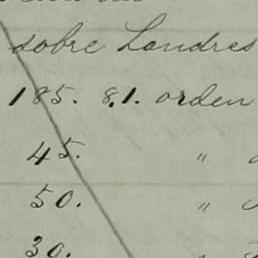 sobre Londres
185. 8.1. orden
45. "
50. "
30. "